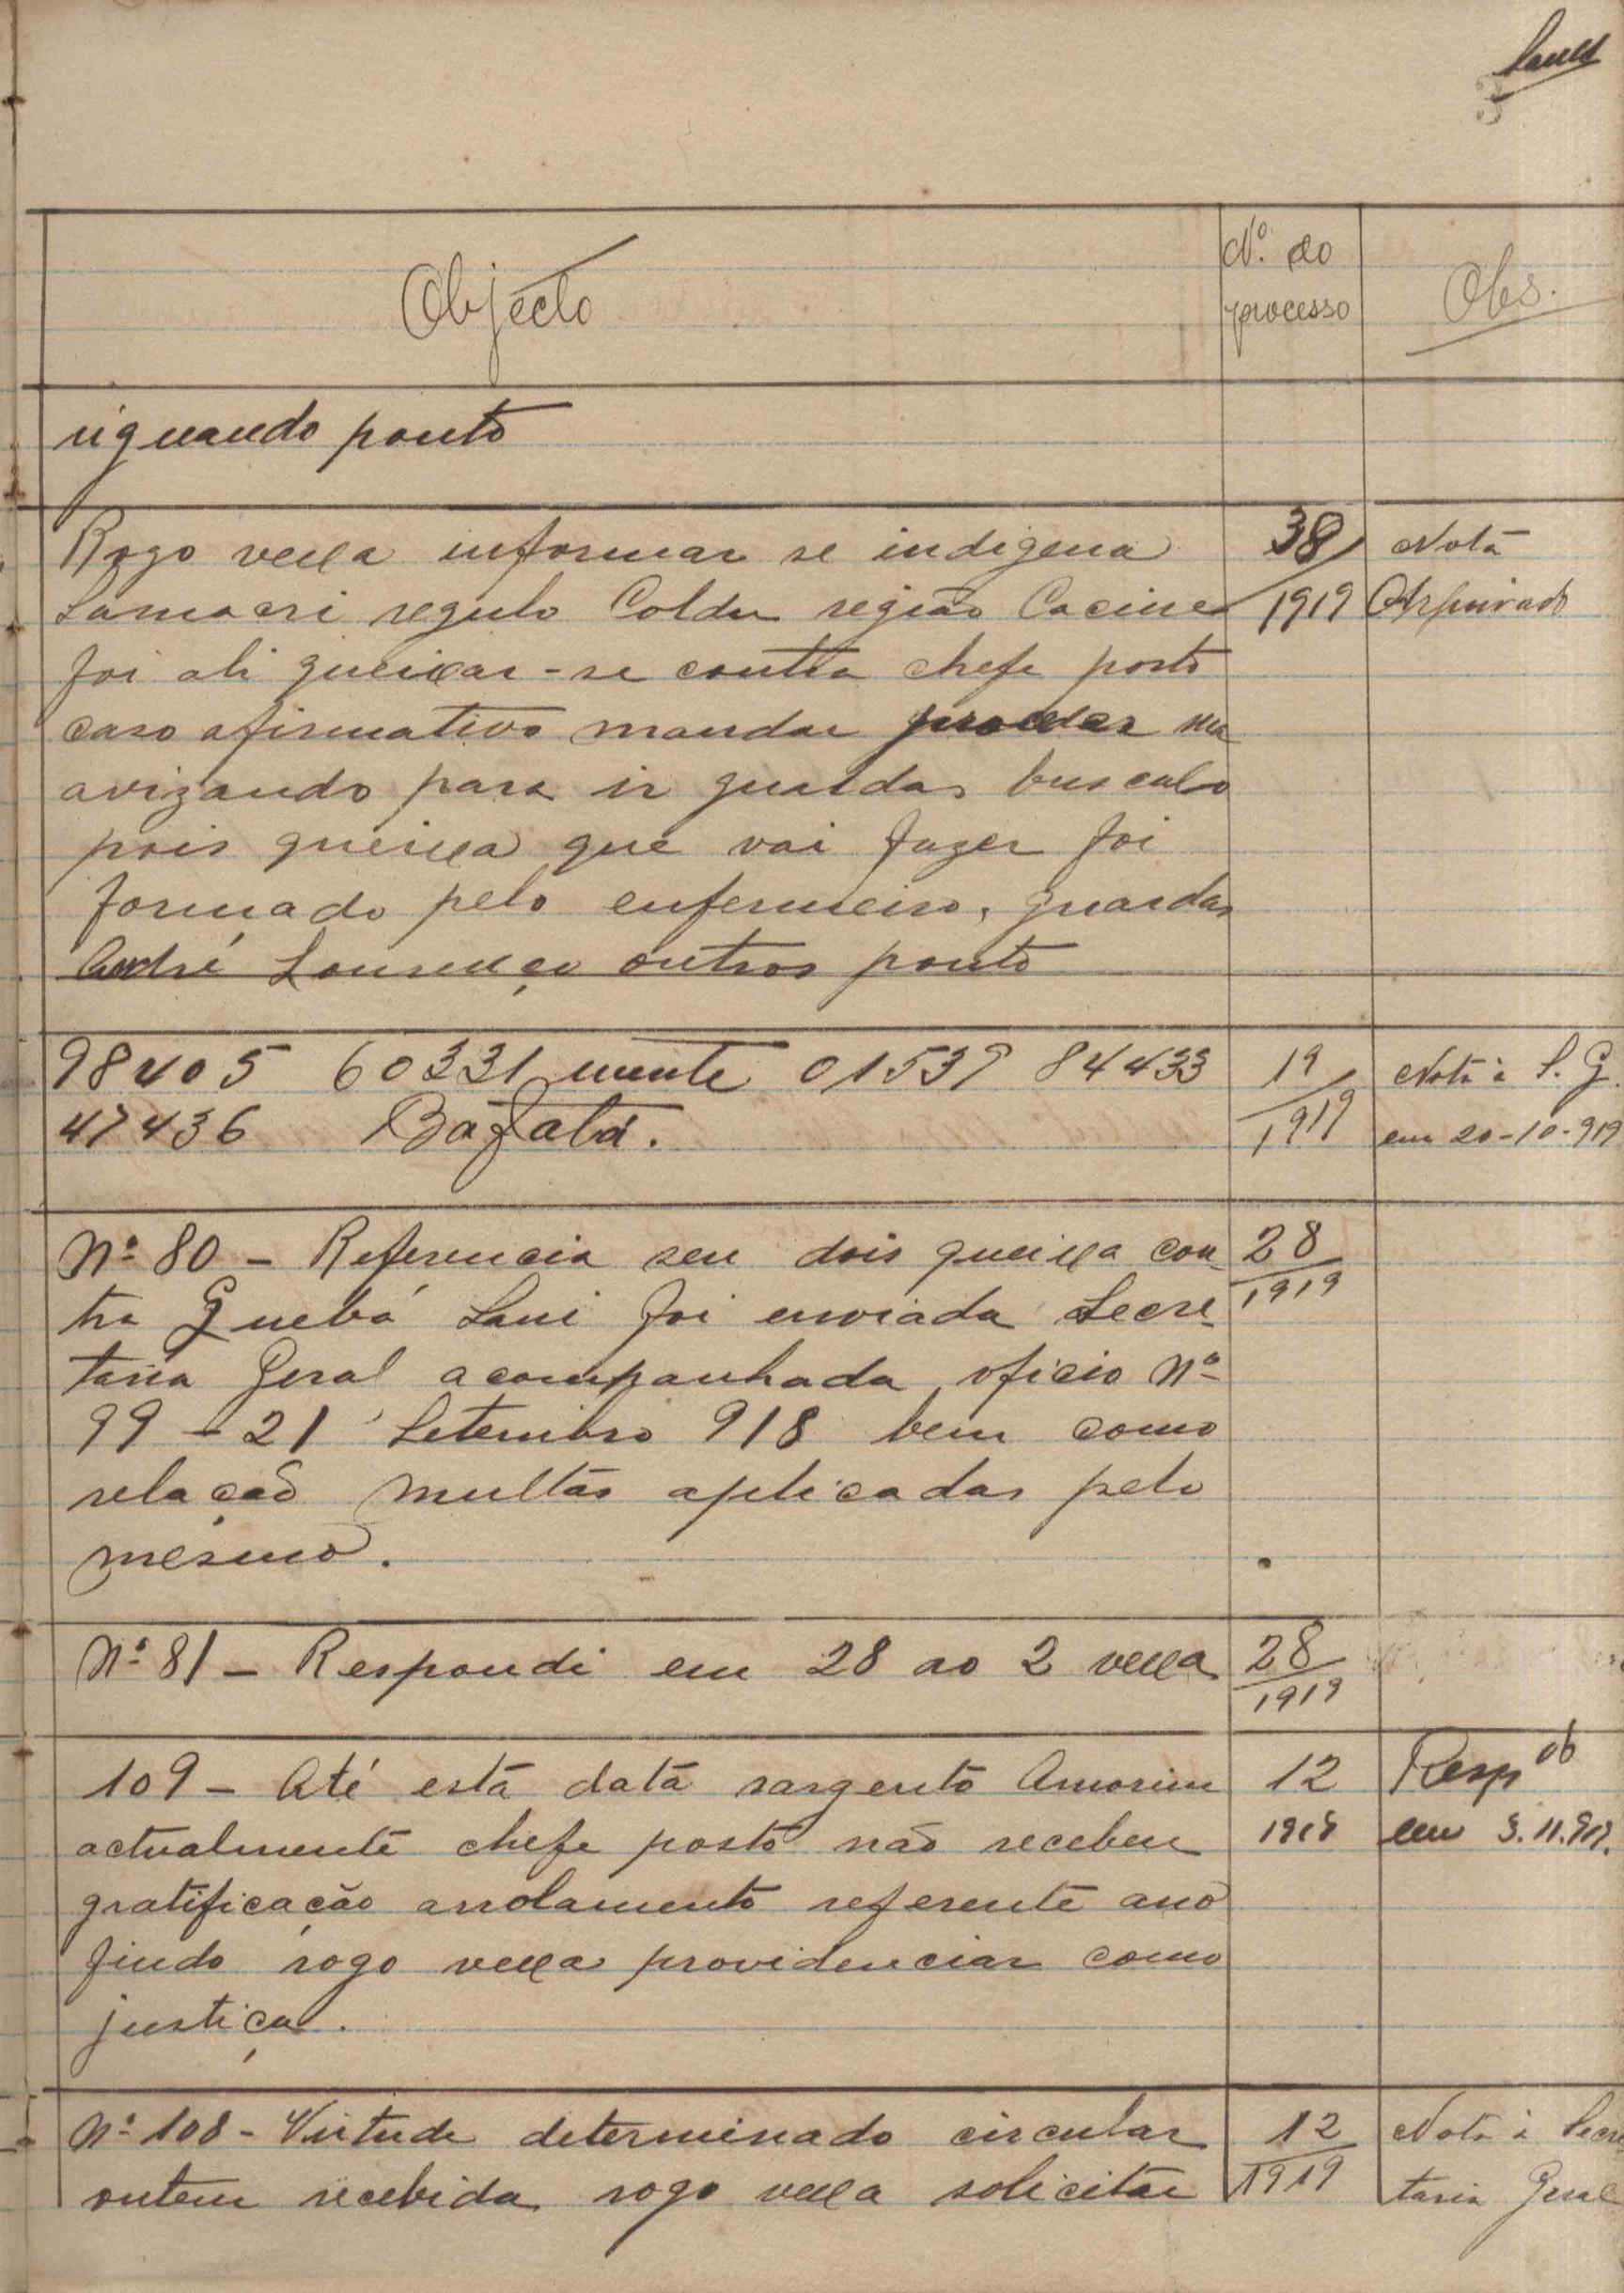 3
Objecto
N.º do
processo
Obs.
rignando ponto
Rogo vexa informar se indigena
38
Nota
Samacri regulo Coldu região Cacine
1919
Arquivado
foi ali queixar-se contra chefe posto
caso afirmativo mandar
avizando para ir guardas buscalo
pois queixa que vai fazer foi
formado pelo enfermeiro, guardas
André Lourenço outros ponto
98405 60331 mente 01539 84433
19
Nota à S. G.
47436 Bafatá.
1919
em 20-10-919
Nº 80 - Referencia seu dois queixa con-
28
tra Quebá Sani foi enviada Secre-
1919
taria Geral acompanhada oficio Nº
99 - 21 Setembro 918 bem como
relação multas aplicadas pelo
mesmo.
Nº 81 - Respondi em 28 ao 2 vexa
28
1919
109 - Até esta data sargento Amorim
12
Resp
actualmente chefe posto não recebeu
1919
em 3.11.919.
gratificação arrolamento referente ano
findo rogo vexa providenciar como
justiça.
Nº 108 - Virtude determinado circular
12
Nota à Secre
ontem recebida rogo vexa solicitar
1919
taria Geral